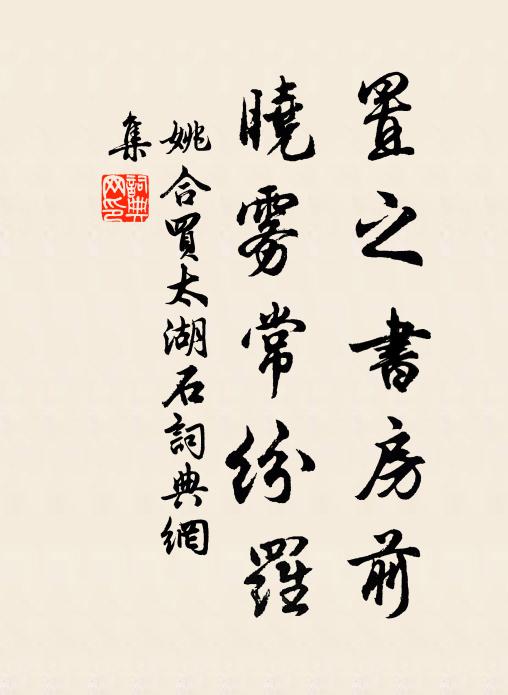 置之書房前
曉霧常紛羅
姚合買太湖石詞典網
集
詞典網印